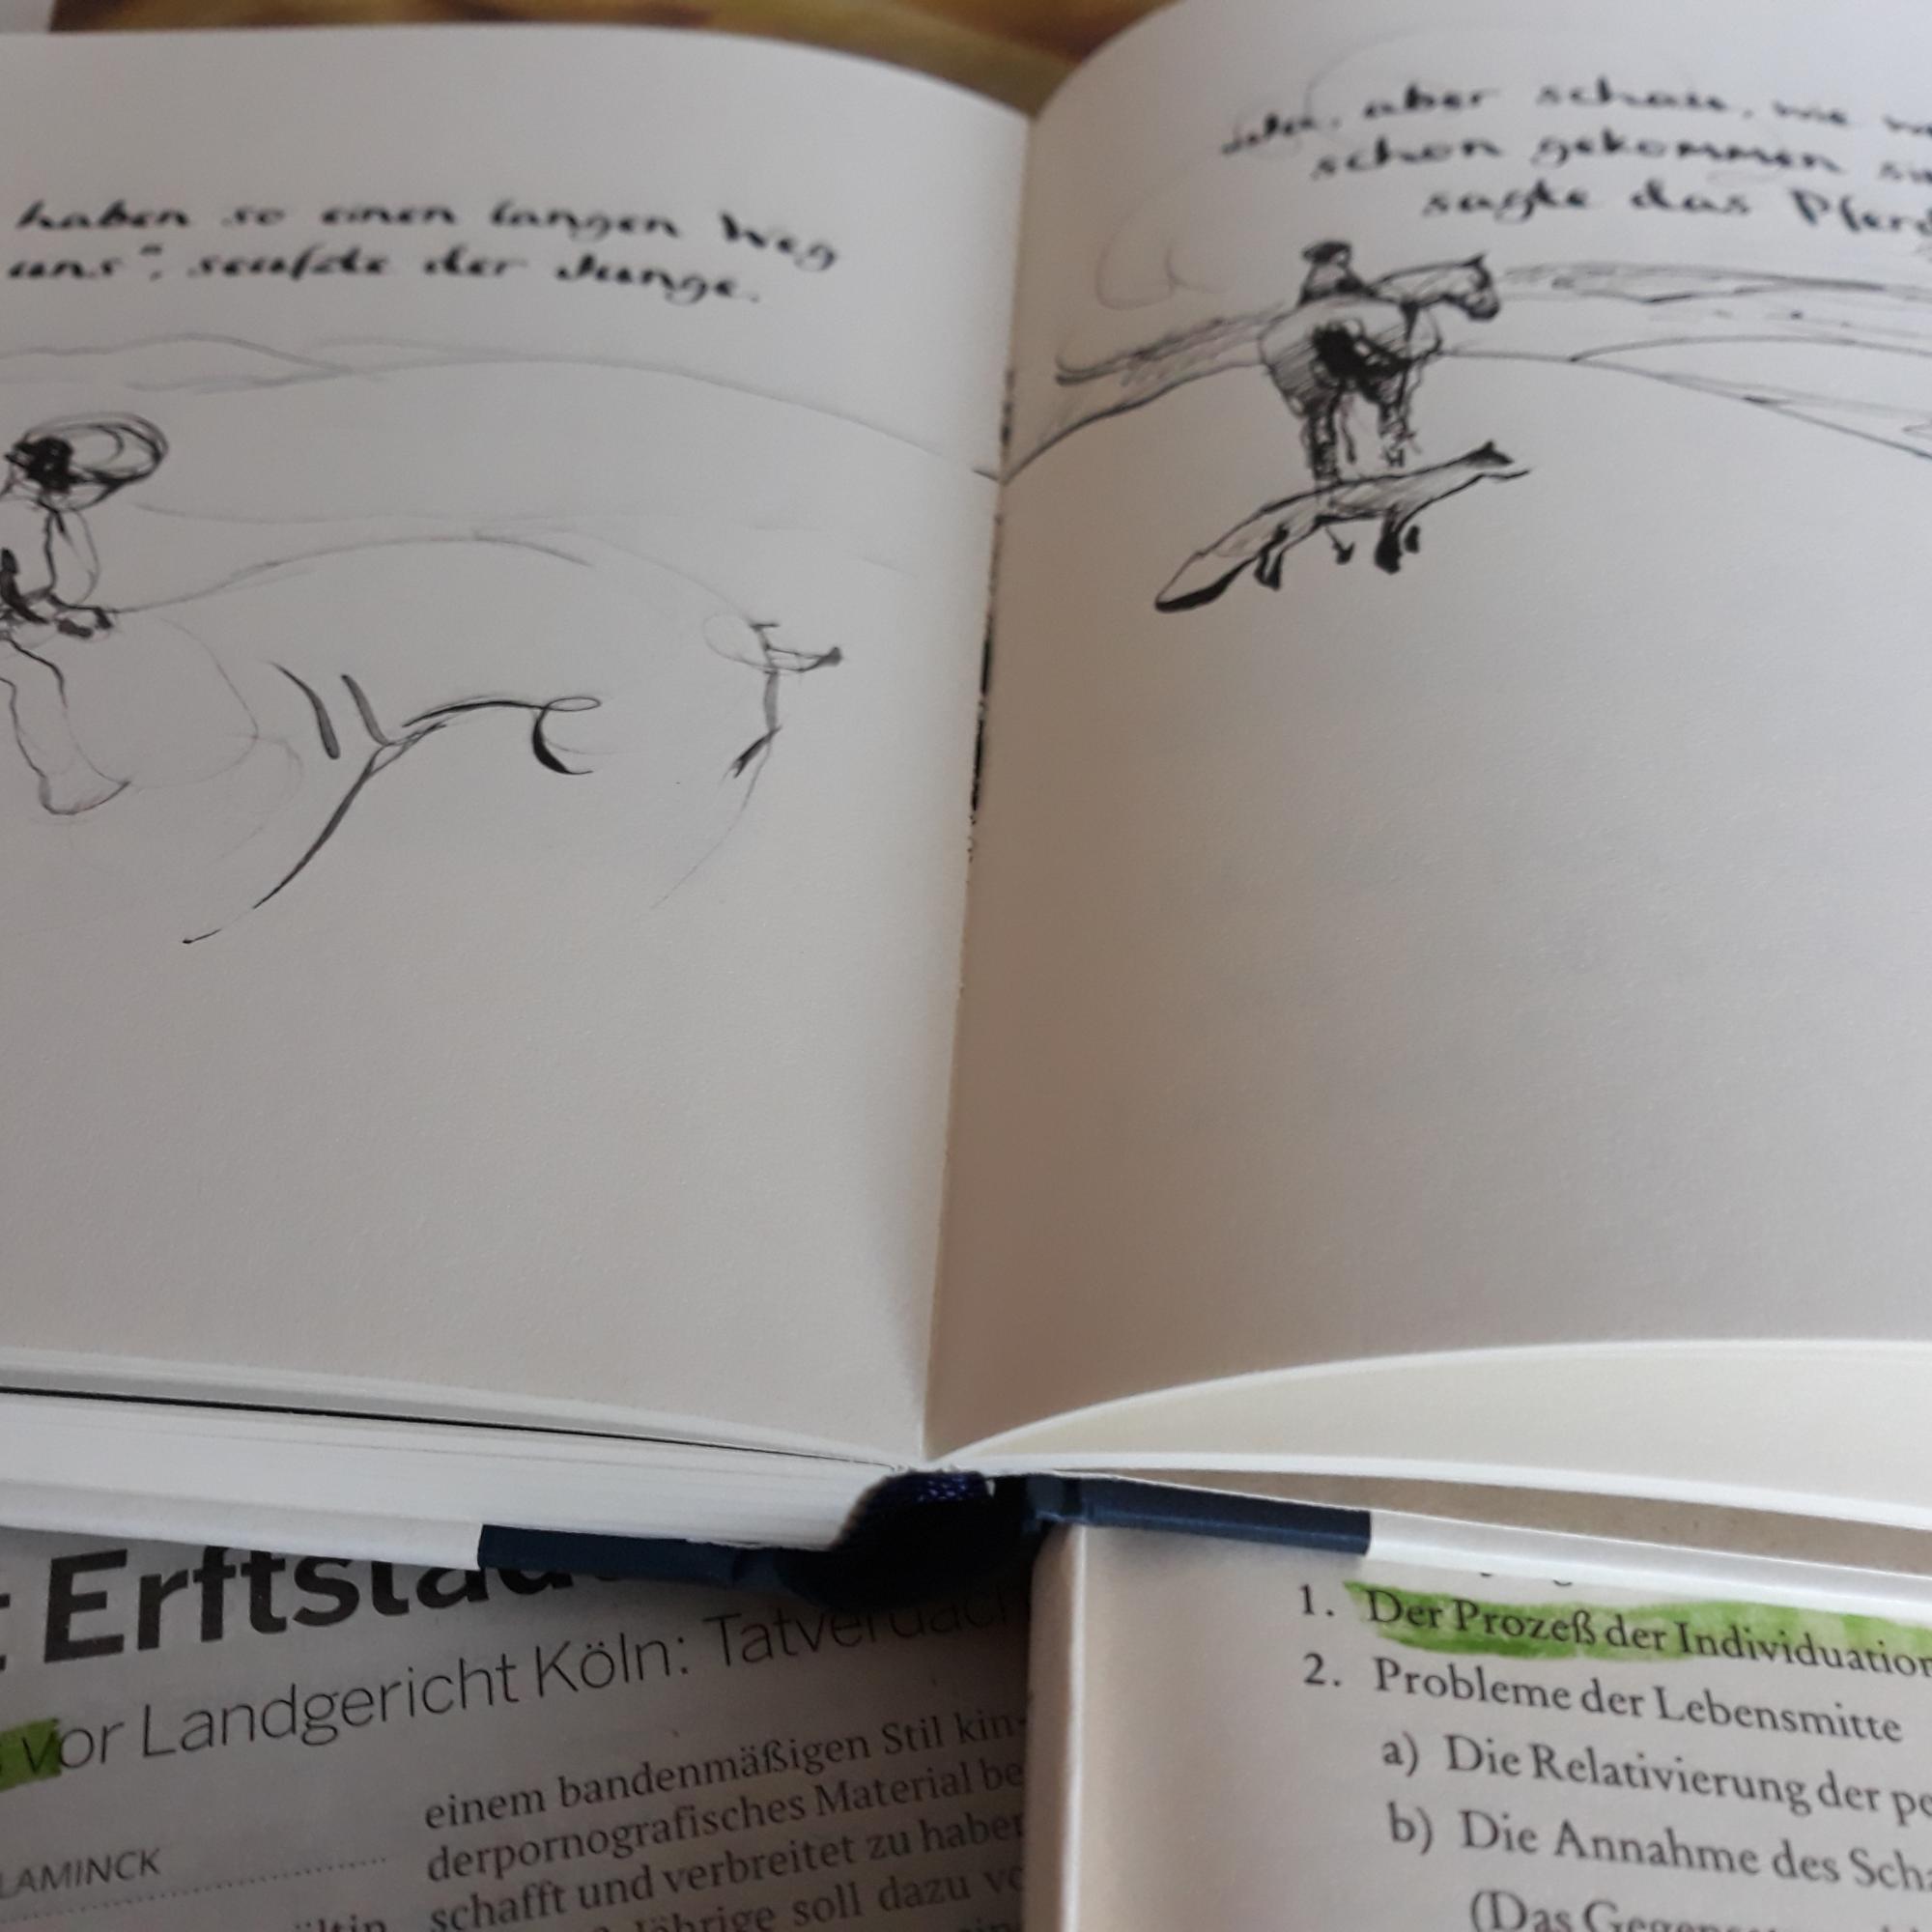 haben so einen langen Weg
uns", seufzte der Junge.
Ja, aber schau, wie
schon gekommen
sagte das Pferd
Erftstadt
vor Landgericht Köln: Tatverdach
einem bandenmäßigen Stil kin-
derpornografisches Material be
schafft und verbreitet zu haben
Jährige soll dazu
LAMINCK
1. Der Prozeß der Individuation
2. Probleme der Lebensmitte
a) Die Relativierung der pe
b) Die Annahme des Scha
(Das Gegen